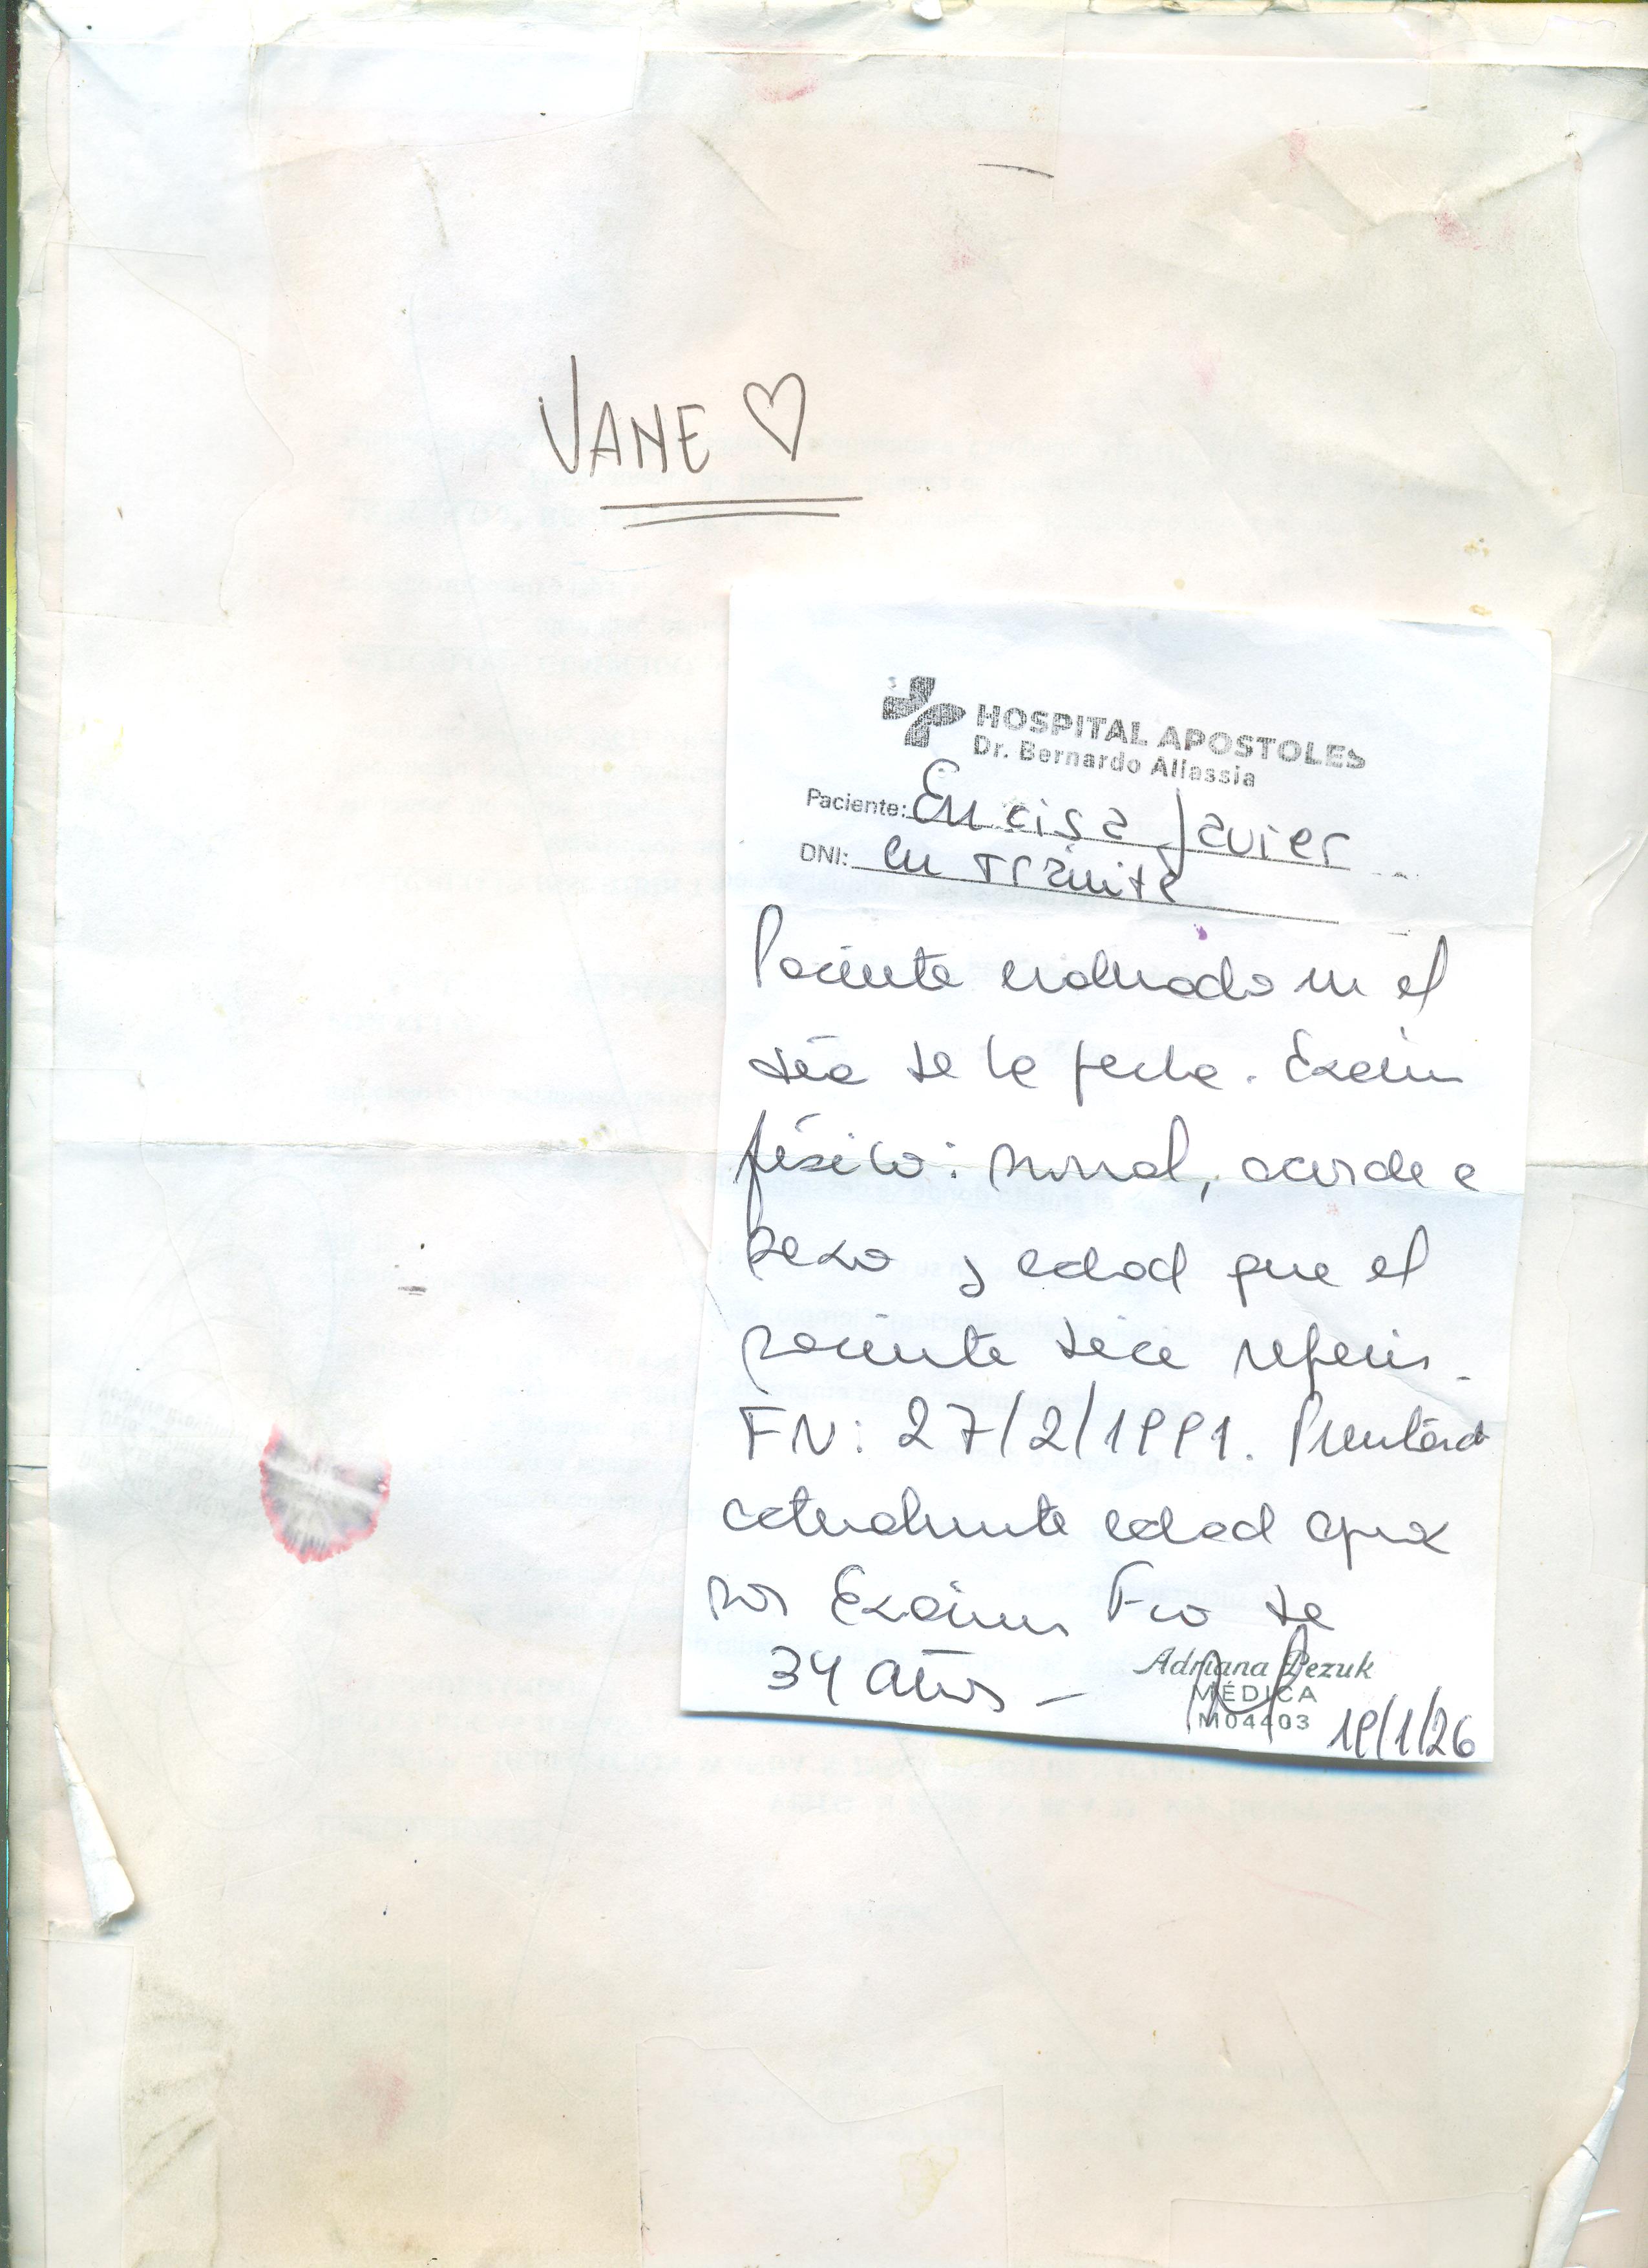 VANE ♡
HOSPITAL APOSTOLES
Dr. Bernardo Allassia
Paciente: Encisa Javier
DNI: en trámite
Paciente evaluado en el
día de la fecha. Examen
físico: normal, acorde a
sexo y edad que el
paciente dice referir.
FN: 27/2/1991. Presentando
actualmente edad aprox
por Examen Fco de
34 años -
Adriana Pezuk
MÉDICA
M04403
19/1/26